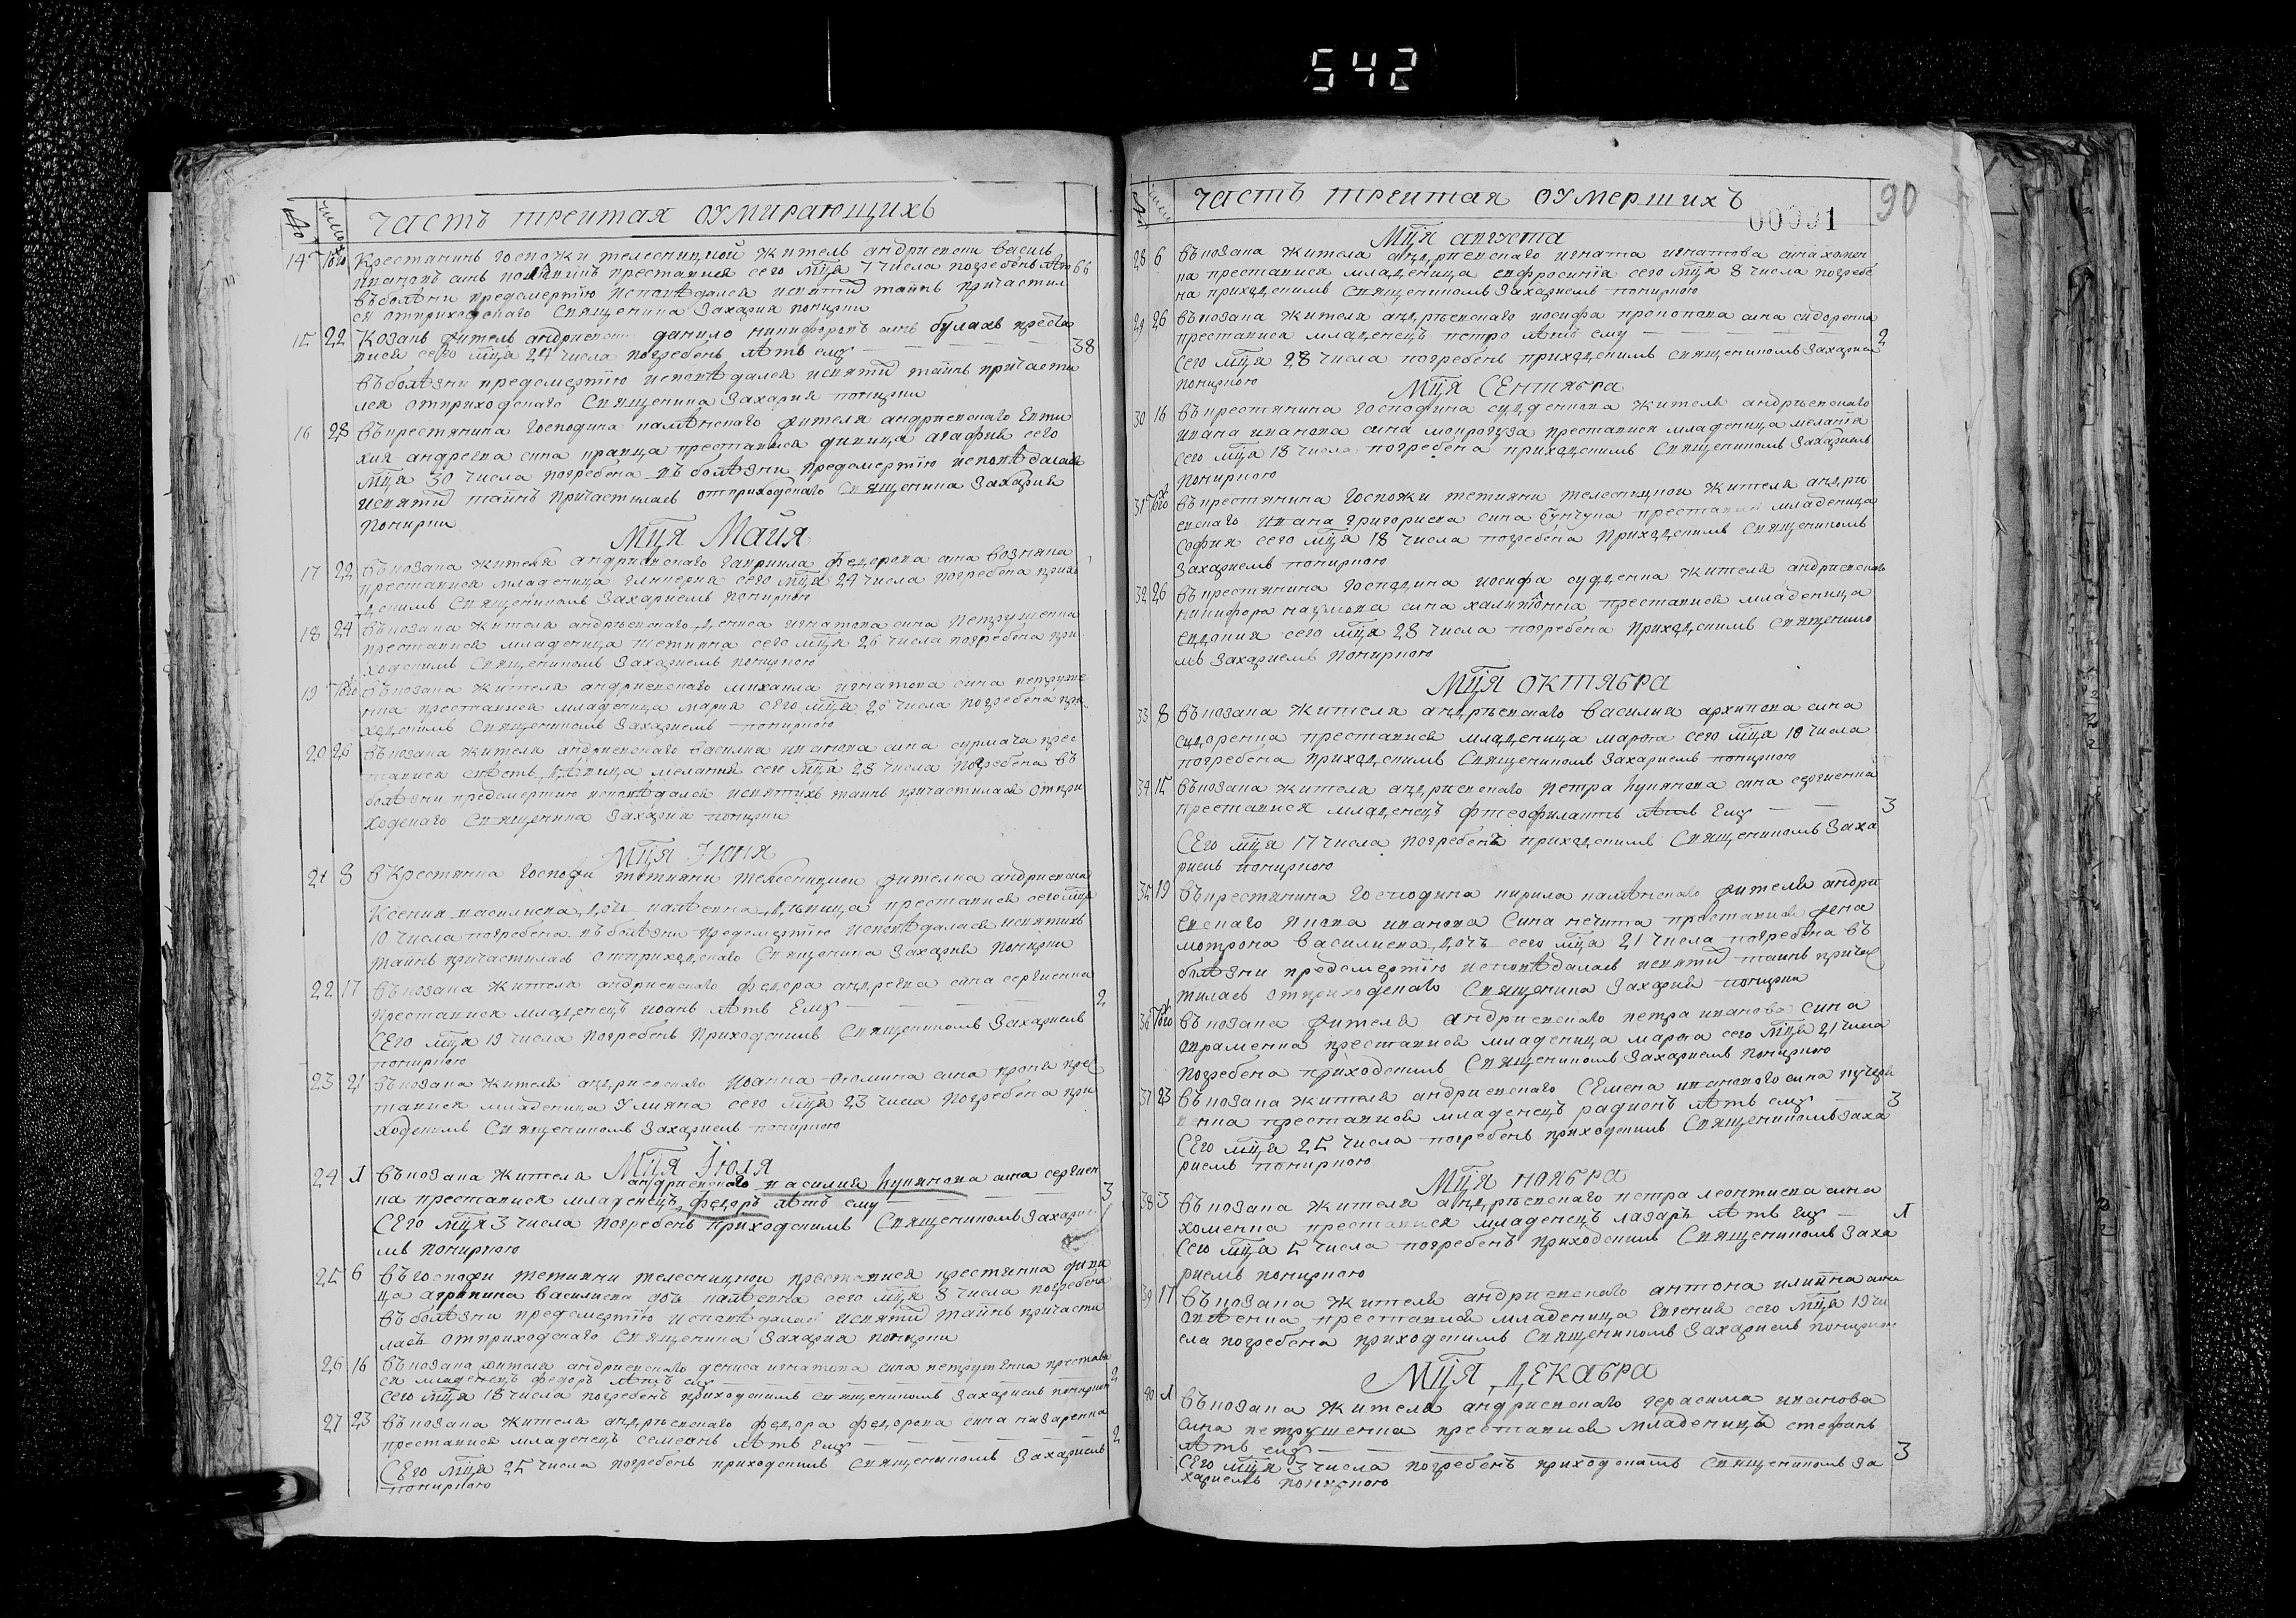 542
№ число
часть треитая оумирающихъ
14 Того Крестянинъ госпожи телесницкой житель андриевски василь
ивановъ синъ преставися сего мця 7 числа погребенъ лѣтъ 66
въболѣзни предсмертїю исповѣдался исвятих таинъ причастил
ся отприходского священика Захария
15 22 Козакъ житель андриевски данило никифоровъ синъ булахъ преста
вися сего мця 24 числа погребенъ лѣтъ ему 38
въболѣзни предсмертїю исповѣдался исвятих таинъ причасти
лся отприходского священика Захария
16 28 въкрестянина господина жителя андриевского Евти
хия андреева сина кравца преставися дивица агафия сего
мця 30 числа погребена въ болѣзни предсмертїю исповѣдалася
исвятих таинъ причастилась отприходского священика Захария
Мця Маия
17 22 въкозака жителя андриевского гавриила федорова сина
преставися младеница гликерия сего мця 24 числа погребена прихо
дскимъ священикомъ Захариемъ
18 24 въкозака жителя андрѣевского дениса игнатова сина петрушенка
преставися младеница тетияна сего мця 26 числа погребена при
ходскимъ священикомъ Захариемъ
19 Того въкозака жителя андриевского михаила игнатова сина петруше
нка преставися младеница мария сего мця 26 числа погребена при
ходскимъ священикомъ Захариемъ
20 26 въкозака жителя андриевского василия иванова сина сурмача прес
тавися дѣвица мелания сего мця 28 числа погребена въ
болѣзни предсмертию исповѣдалася исвятихъ таинъ причастилася отпри
ходского священика Захария
Мця Июня
21 8 въкрестянка госпожи тетияни телесницкои жителка андриевска
Ксения василиева дочь дѣвица преставися сего мця
10 числа погребена въ болѣзни предсмертїю исповѣдалася исвятихъ
таинъ причастилась отприходского священика Захария
22 17 въкозака жителя андриевского федора андреева сина сергиенка
преставися младенецъ иоанъ лѣтъ ему 2
Сего мця 19 числа погребенъ приходскимъ священикомъ Захариемъ
23 21 въкозака жителя андриевского иоанна фомина сина прес
тавися младеница Улияна сего мця 23 числа погребена при
ходскимъ священикомъ Захариемъ
Мця Июля
24 1 въкозака жителя андриевского василия сина сергиен
ка преставися младенецъ федоръ лѣтъ ему 3
Сего мця 3 числа погребенъ приходскимъ священикомъ Захарие
мъ
25 6 въгоспожи тетияни телесницкои преставися крестянка диви
ца агрипина василиева дочь сего мця 8 числа погребена
въболѣзни предсмертїю исповѣдалася исвятих таинъ причасти
лась отприходского священика Захария
26 16 въкозака жителя андриевского дениса игнатова сина петрушенка престави
ся младенецъ федоръ лѣтъ ему 2
сего мця 18 числа погребенъ приходскимъ священикомъ Захариемъ
27 23 въкозака жителя андрѣевского федора федорова сина назаренка
преставися младенецъ семеонъ лѣтъ ему 2
Сего мця 25 числа погребенъ приходскимъ священикомъ Захариемъ
№ число
часть треитая оумершихъ
90
00991
Мця августа
28 6 въкозака жителя андриевского игната игнатова сина хомен
ка преставися младеница ефросинїя сего мця 8 числа погребе
на приходскимъ священикомъ Захариемъ
29 26 въкозака жителя андрѣевского иосифа прокопова сина сидоренка
преставися младенецъ петро лѣтъ ему 2
сего мця 28 числа погребенъ приходскимъ священикомъ Захарием
Мця Сентября
30 16 въкрестянина господина судденкова жителя андрѣевского
ивана иванова сина преставися младеница меланїя
сего мця 18 числа погребена приходскимъ священикомъ Захариемъ
31 Того въкрестянина госпожи тетияни телесницкои жителя андри
евского ивана григориева сина бунчука преставися младеница
София сего мця 18 числа погребена приходскимъ священикомъ
Захариемъ
32 26 въкрестянина господина иосифа судденка жителя андриевского
никифора наумова сина преставися младеница
евдокия сего мця 28 числа погребена приходскимъ священико
мъ Захариемъ
Мця октября
33 8 въкозака жителя андрѣевского василия архипова сина
сидоренка преставися младеница марфа сего мця 10 числа
погребена приходскимъ священикомъ Захариемъ
34 15 въкозака жителя андриевского петра сина сергиенка
преставися младенецъ лѣтъ Ему 3
Сего мця 17 числа погребенъ приходскимъ священикомъ Заха
риемъ
35 19 въкрестянина господина кирила жителя андри
евского иванова сина преставися жена
мотрона василиева дочъ сего мця 21 числа погребена въ
болѣзни предсмертїю исповѣдалась исвятих таинъ причас
тилась отприходского священика Захария
36 Того въкозака жителя андриевского петра иванова сина
авраменка преставися младеница марфа сего мця 21 числа
погребена приходскимъ священикомъ Захариемъ
37 23 въкозака жителя андриевского Семена сина
преставися младенецъ радионъ лѣтъ ему 3
Сего мця 25 числа погребенъ приходскимъ священикомъ Заха
риемъ
Мця ноября
38 3 въкозака жителя андрѣевского петра леонтиева сина
хоменка преставися младенецъ лазаръ лѣтъ ему 1
Сего мця 5 числа погребенъ приходскимъ священикомъ Заха
риемъ
39 17 въкозака жителя андриевского антона сина
преставися младеница Евгения сего мця 19 чи
сла погребена приходскимъ священикомъ Захариемъ
Мця Декабра
40 1 въкозака жителя андриевского герасима иванова
сина петрушенка преставися младеницъ стефанъ
лѣтъ ему 3
Сего мця 3 числа погребенъ приходскимъ священикомъ За
хариемъ